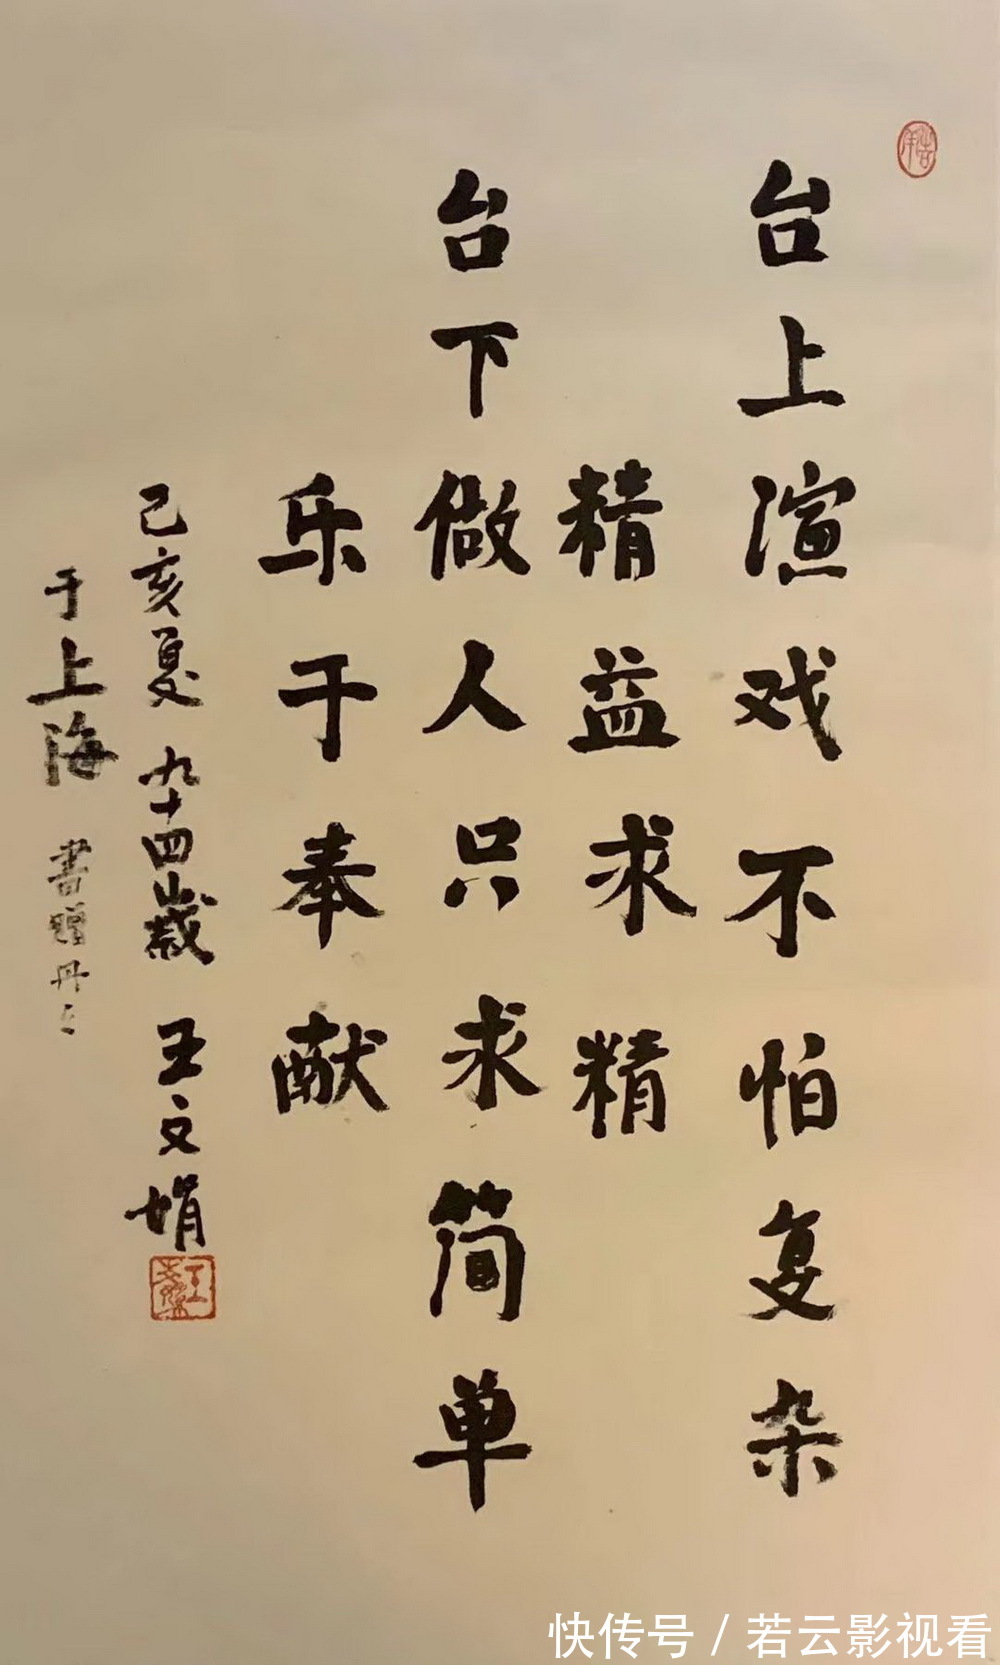 台上演戏不怕复杂
精益求精
台下做人只求简单
乐于奉献
己亥夏 九十四岁 王文娟
于上海 书赠丹丹
王文娟
快传号 / 若云影视看